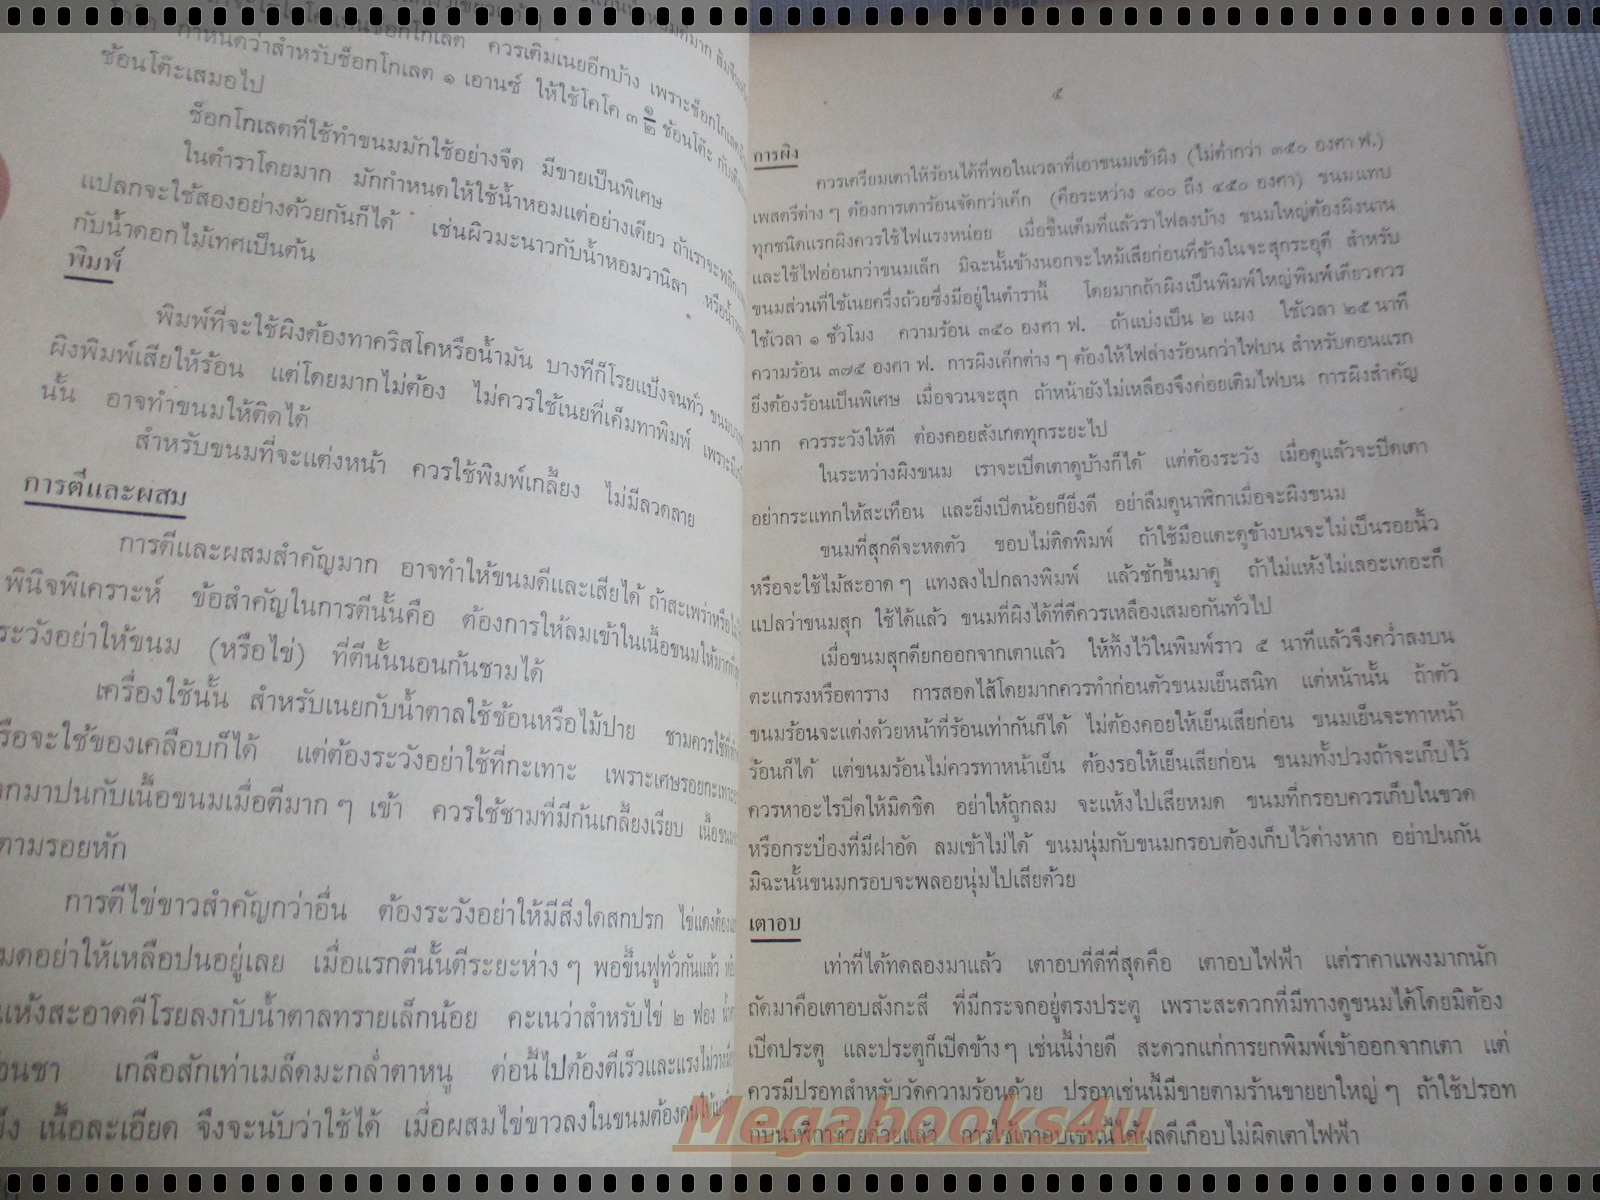 ควรเติมเนยอีกบ้าง เพราะช็อกโกเลต
กำหนดว่าสำหรับช็อกโกเลต ๑ เอานซ์ ให้ใช้โคโค ๓ ๑/๒ ช้อนโต๊ะ
ช้อนโต๊ะเสมอไป
ช็อกโกเลตที่ใช้ทำขนมมักใช้อย่างจืด มีขายเป็นพิเศษ
ในตำราโดยมาก มักกำหนดให้ใช้น้ำหอมแต่อย่างเดียว ถ้าเราจะพลิกแพลง
แปลกจะใช้สองอย่างด้วยกันก็ได้ เช่นผิวมะนาวกับน้ำหอมวานิลา หรือน้ำหอม
กับน้ำดอกไม้เทศเป็นต้น
พิมพ์
พิมพ์ที่จะใช้ผิงต้องทาคริสโคหรือน้ำมัน บางทีก็โรยแป้งจนทั่ว
ผิงพิมพ์เสียให้ร้อน แต่โดยมากไม่ต้อง ไม่ควรใช้เนยที่เค็มทาพิมพ์ เพราะ
นั้น อาจทำขนมให้ติดได้
สำหรับขนมที่จะแต่งหน้า ควรใช้พิมพ์เกลี้ยง ไม่มีลวดลาย
การตีและผสม
การตีและผสมสำคัญมาก อาจทำให้ขนมดีและเสียได้ ถ้าสะเพร่าหรือ
พินิจพิเคราะห์ ข้อสำคัญในการตีนั้นคือ ต้องการให้ลมเข้าในเนื้อขนมให้มาก
ระวังอย่าให้ขนม (หรือไข่) ที่ตีนั้นนอนก้นชามได้
เครื่องใช้นั้น สำหรับเนยกับน้ำตาลใช้ช้อนหรือไม้ปาย ชามควรใช้
หรือจะใช้ของเคลือบก็ได้ แต่ต้องระวังอย่าใช้ที่กะเทาะ เพราะเศษรอยกะเทาะ
ออกมาปนกับเนื้อขนมเมื่อตีมาก ๆ เข้า ควรใช้ชามที่มีก้นเกลี้ยงเรียบ เนื้อขนม
ตามรอยหัก
การตีไข่ขาวสำคัญกว่าอื่น ต้องระวังอย่าให้มีสิ่งใดสกปรก ไข่แดงต้อง
หมดอย่าให้เหลือปนอยู่เลย เมื่อแรกตีนั้นตีระยะห่าง ๆ พอขึ้นฟูทั่วกันแล้ว
แห้งสะอาดดีโรยลงกับน้ำตาลทรายเล็กน้อย คะเนว่าสำหรับไข่ ๒ ฟอง
ช้อนชา เกลือสักเท่าเมล็ดมะกล่ำตาหนู ต่อนี้ไปต้องตีเร็วและแรงไม่วางมือ
เนื้อละเอียด จึงจะนับว่าใช้ได้ เมื่อผสมไข่ขาวลงในขนมต้องคนให้
๕
การผิง
ควรเตรียมเตาให้ร้อนได้ที่พอในเวลาที่เอาขนมเข้าผิง (ไม่ต่ำกว่า ๓๕๐ องศา ฟ.)
เพสตรีต่าง ๆ ต้องการเตาร้อนจัดกว่าเค้ก (คือระหว่าง ๔๐๐ ถึง ๔๕๐ องศา) ขนมแทบ
ทุกชนิดแรกผิงควรใช้ไฟแรงหน่อย เมื่อขึ้นเต็มที่แล้วราไฟลงบ้าง ขนมใหญ่ต้องผิงนาน
และใช้ไฟอ่อนกว่าขนมเล็ก มิฉะนั้นข้างนอกจะไหม้เสียก่อนที่ข้างในจะสุกระอุดี สำหรับ
ขนมส่วนที่ใช้เนยครึ่งถ้วยซึ่งมีอยู่ในตำรานี้ โดยมากถ้าผิงเป็นพิมพ์ใหญ่พิมพ์เดียวควร
ใช้เวลา ๑ ชั่วโมง ความร้อน ๓๕๐ องศา ฟ. ถ้าแบ่งเป็น ๒ แผง ใช้เวลา ๒๕ นาที
ความร้อน ๓๗๕ องศา ฟ. การผิงเค้กต่าง ๆ ต้องให้ไฟล่างร้อนกว่าไฟบน สำหรับตอนแรก
ยิ่งต้องร้อนเป็นพิเศษ เมื่อจวนจะสุก ถ้าหน้ายังไม่เหลืองจึงค่อยเติมไฟบน การผิงสำคัญ
มาก ควรระวังให้ดี ต่องคอยสังเกตทุกระยะไป
ในระหว่างผิงขนม เราจะเปิดเตาดูบ้างก็ได้ แต่ต้องระวัง เมื่อดูแล้วจะปิดเตา
อย่ากระแทกให้สะเทือน และยิ่งเปิดน้อยก็ยิ่งดี อย่าลืมดูนาฬิกาเมื่อจะผิงขนม
ขนมที่สุกดีจะหดตัว ขอบไม่ติดพิมพ์ ถ้าใช้มือแตะดูข้างบนจะไม่เป็นรอยนิ้ว
หรือจะใช้ไม้สะอาด ๆ แทงลงไปกลางพิมพ์ แล้วชักขึ้นมาดู ถ้าไม้แห้งไม่เลอะเทอะก็
แปลว่าขนมสุก ใช้ได้แล้ว ขนมที่ผิงได้ที่ดีควรเหลืองเสมอกันทั่วไป
เมื่อขนมสุกดียกออกจากเตาแล้ว ให้ทิ้งไว้ในพิมพ์ราว ๕ นาทีแล้วจึงคว่ำลงบน
ตะแกรงหรือตาราง การสอดไส้โดยมากควรทำก่อนตัวขนมเย็นสนิท แต่หน้านั้น ถ้าตัว
ขนมร้อนจะแต่งด้วยหน้าที่ร้อนเท่ากันก็ได้ ไม่ต้องคอยให้เย็นเสียก่อน ขนมเย็นจะทาหน้า
ร้อนก็ได้ แต่ขนมร้อนไม่ควรทาหน้าเย็น ต้องรอให้เย็นเสียก่อน ขนมทั้งปวงถ้าจะเก็บไว้
ควรหาอะไรปิดให้มิดชิด อย่าให้ถูกลม จะแห้งไปเสียหมด ขนมที่กรอบควรเก็บในขวด
หรือกระป๋องที่มีฝาอัด ลมเข้าไม่ได้ ขนมนุ่มกับขนมกรอบต้องเก็บไว้ต่างหาก อย่าปนกัน
มิฉะนั้นขนมกรอบจะพลอยนุ่มไปเสียด้วย
เตาอบ
เท่าที่ได้ทดลองมาแล้ว เตาอบที่ดีที่สุดคือ เตาอบไฟฟ้า แต่ราคาแพงมากนัก
ถัดมาคือเตาอบสังกะสี ที่มีกระจกอยู่ตรงประตู เพราะสะดวกที่มีทางดูขนมได้โดยมิต้อง
เปิดประตู และประตูก็เปิดข้าง ๆ เช่นนี้ง่ายดี สะดวกแก่การยกพิมพ์เข้าออกจากเตา แต่
ควรมีปรอทสำหรับวัดความร้อนด้วย ปรอทเช่นนี้มีขายตามร้านขายยาใหญ่ ๆ ถ้าใช้ปรอท
กับนาฬิกาช่วยด้วยแล้ว การใช้เตาอบเช่นนี้ได้ผลดีเกือบไม่ผิดเตาไฟฟ้า
Megabooks4u